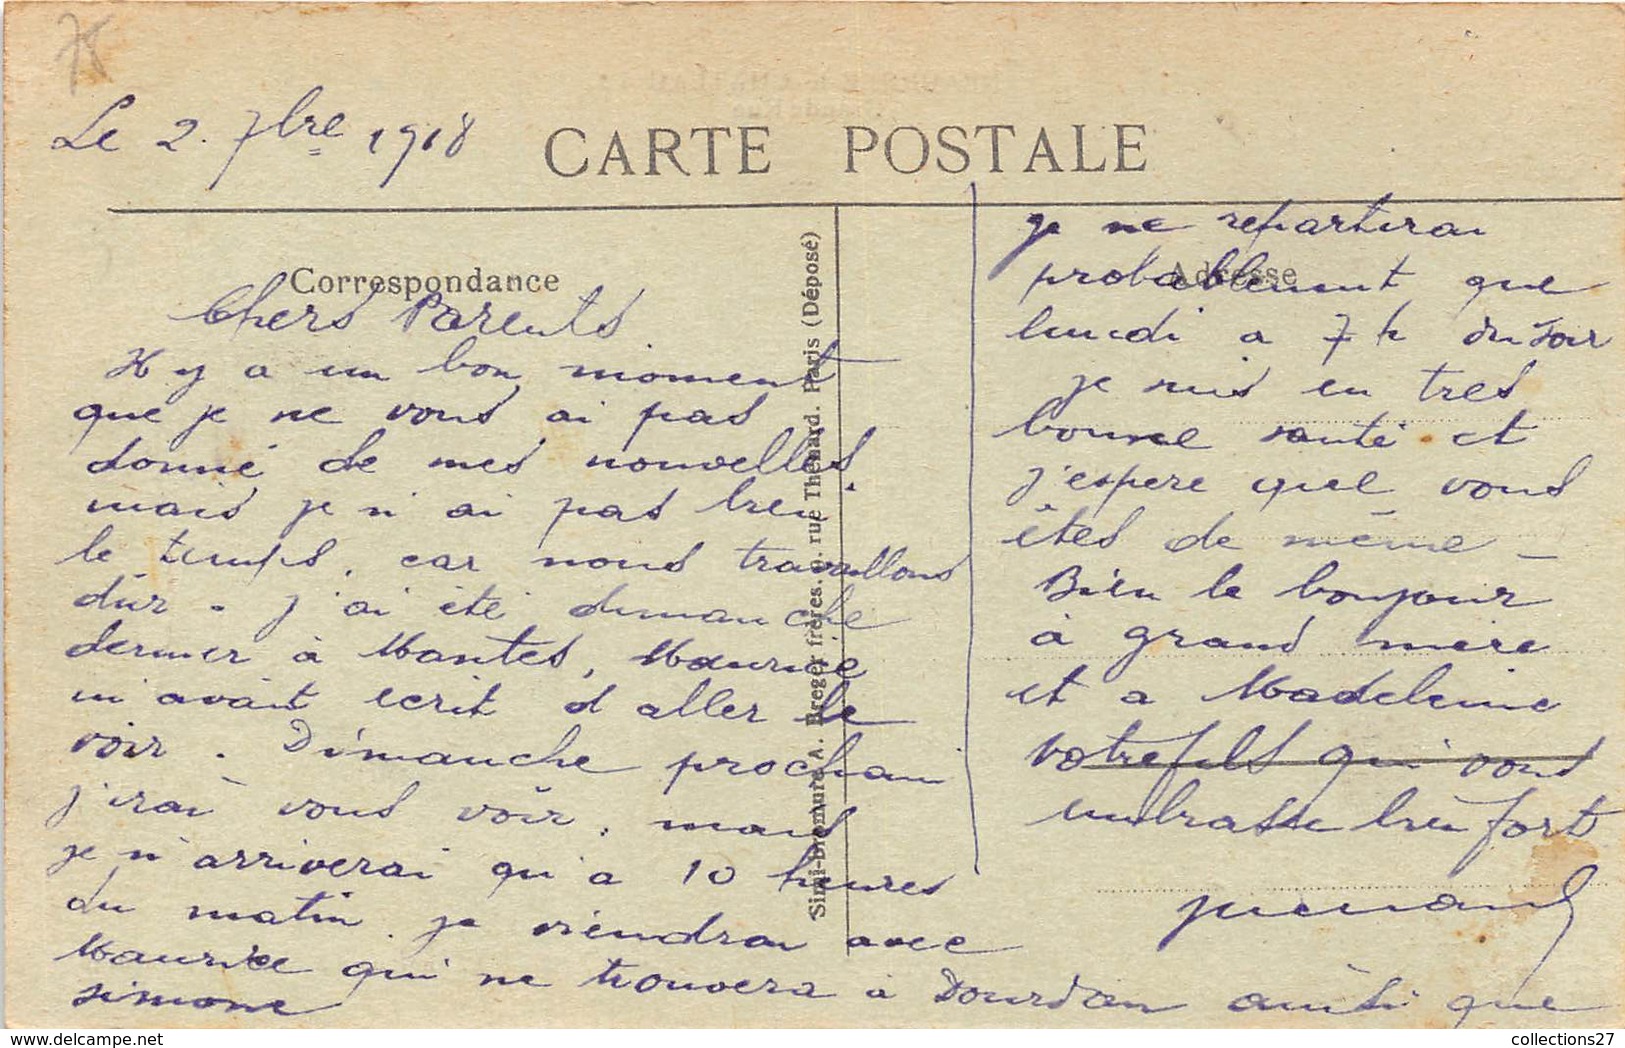 75
Le 2. 7bre 1918
CARTE POSTALE
Correspondance
Chers Parents
Il y a un bon moment
que je ne vous ai pas
donné de mes nouvelles.
mais je n'ai pas bien
le temps, car nous travaillons
dur. J'ai été dimanche
dernier à Mantes, Maurice
m'avait ecrit d'aller le
voir. Dimanche prochain
j'irai vous voir, mais
je n'arriverai qu'a 10 heures
du matin je viendrai avec
Maurice qui me trouvera à Dourdan ainsi que
simone
Simi-Bromure A. Breger frères. 9. rue Thénard. Paris (Déposé)
Adresse
je ne repartirai
probablement que
lundi a 7 h du soir
je suis en tres
bonne santé et
j'espere que vous
êtes de même —
Bien le bonjour
à grand mère
et a Madeleine
votre fils qui vous
embrasse bien fort
collections27